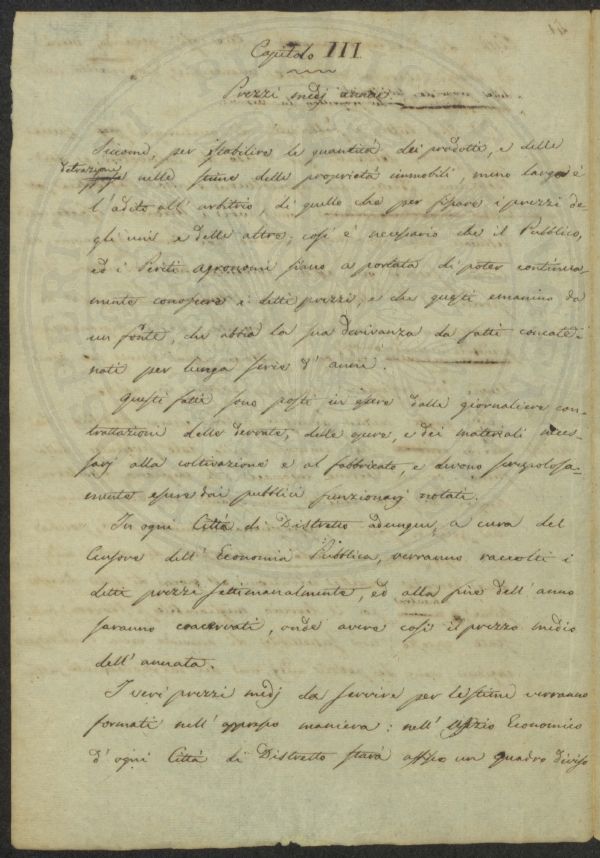 Capitolo III
Prezzi medj annui
Siccome, per istabilire le quantità dei prodotti, e delle
detrazioni nelle stime delle proprietà immobili, meno largo è
l'adito all'arbitrio, di quello che per fissare i prezzi de
gli uni e delle altre; così è necessario che il Pubblico,
ed i Periti agronomi siano a portata di poter continua-
mente conoscere i detti prezzi, e che questi emanino da
un fonte, che abbia la sua derivanza da fatti concate-
nati per lunga serie d'anni.
Questi fatti sono posti in essere dalle giornaliere con-
trattazioni delle derrate, delle opere, e dei materiali neces-
sarj alla coltivazione e al fabbricato, e devono scrupolosa-
mente essere dai pubblici funzionarj notati.
In ogni Città di Distretto adunque, a cura del
Censore dell'Economia Pubblica, verranno raccolti i
detti prezzi settimanalmente, ed alla fine dell'anno
saranno coacervati, onde avere così il prezzo medio
dell'annata.
I veri prezzi medj da servire per le stime verranno
formati nell'appresso maniera: nell'Uffizio Economico
d'ogni Città di Distretto starà affisso un quadro diviso